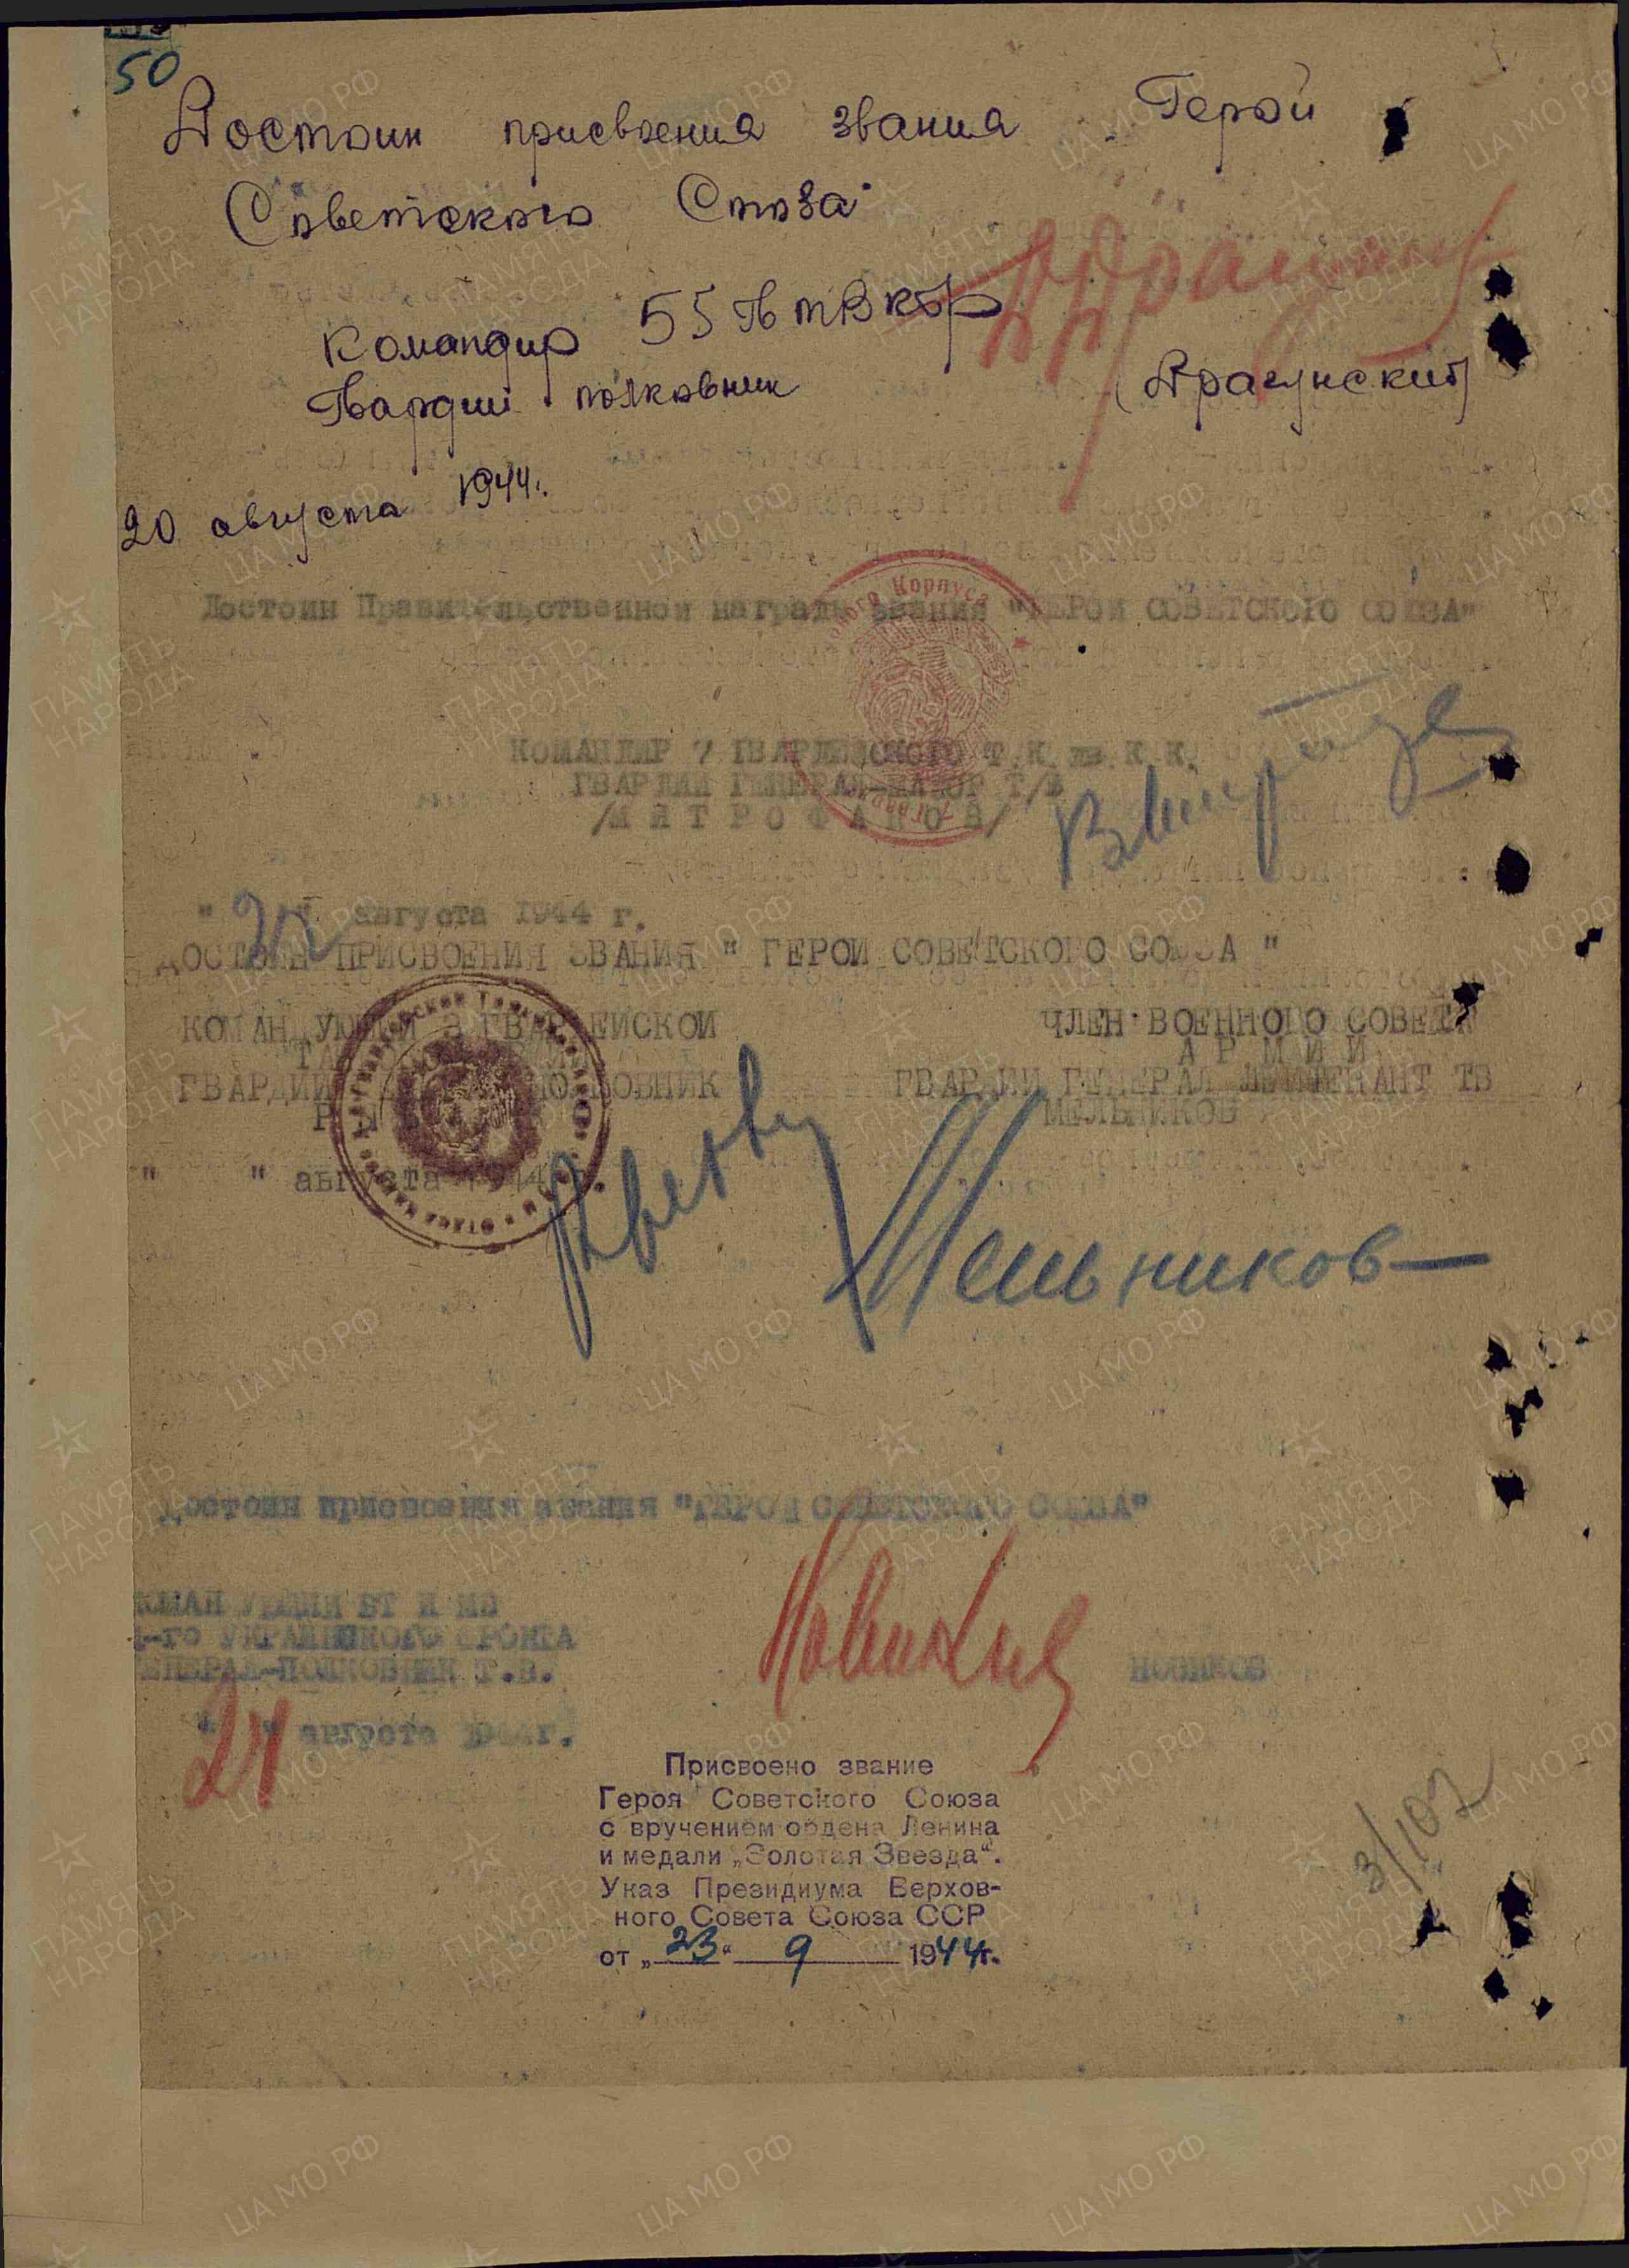 50
Достоин присвоения звания Герой
Советского Союза
Командир 55 Гв тбр
Гвардии полковник (Драгунский)
20 августа 1944г.
Достоин Правительственной награды звания "ГЕРОЙ СОВЕТСКОГО СОЮЗА"
КОМАНДИР 7 ГВАРДЕЙСКОГО Т.К.
ГВАРДИИ ГЕНЕРАЛ-МАЙОР Т/В
/М И Т Р О Ф А Н О В/
" " августа 1944 г.
ДОСТОИН ПРИСВОЕНИЯ ЗВАНИЯ " ГЕРОЙ СОВЕТСКОГО СОЮЗА "
КОМАНДУЮЩИЙ 3 ГВАРДЕЙСКОЙ
ЧЛЕН ВОЕННОГО СОВЕТА
А Р М И И
ГВАРДИИ ПОЛКОВНИК
ГВАРДИИ ГЕНЕРАЛ ЛЕЙТЕНАНТ ТВ
МЕЛЬНИКОВ
" " августа 1944
Мельников
Достоин присвоения звания "ГЕРОЙ СОВЕТСКОГО СОЮЗА"
КОМАНДУЮЩИЙ БТ И МВ
1-го УКРАИНСКОГО ФРОНТА
ГЕНЕРАЛ-ПОЛКОВНИК Т.В.
НОВИКОВ
"21" августа 1944г.
Присвоено звание
Героя Советского Союза
с вручением ордена Ленина
и медали „Золотая Звезда“.
Указ Президиума Верхов-
ного Совета Союза ССР
от „23“ 9 1944г.
3/107
ПАМЯТЬ НАРОДА
ЦА МО РФ